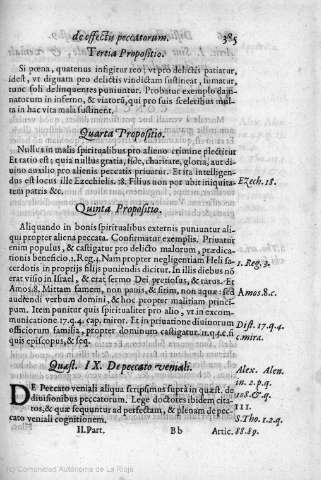 de effectu peccatorum. 385
Tertia Propositio.
Si pœna, quatenus infigitur reo, vt pro delictis patiatur,
idest, vt dignam pro delictis vindictam sustineat, sumatur,
tunc soli delinquentes puniuntur. Probatur exemplo dam
natorum in inferno, & viatorū, qui pro suis sceleribus mul
ta in hac vita mala sustinent.
Quarta Propositio.
Nullus in malis spiritualibus pro alieno crimine plectitur
Et ratio est; quia nullus gratia, fide, charitate, gloria, aut di
uino auxilio pro alienis peccatis priuatur. Et ita intelligen-
dus est locus ille Ezechielis. 18. Filius non portabit iniquita
tem patris &c.
Ezech. 18.
Quinta Propositio.
Aliquando in bonis spiritualibus externis puniuntur ali-
qui propter aliena peccata. Confirmatur exemplis. Priuatur
enim populus, & castigatur pro delicto malorum, prædica-
tionis beneficio. 1. Reg. 3. Nam propter negligentiam Heli sa-
cerdotis in proprijs filijs puniendis dicitur. In illis diebus nō
erat visio in Israel, & erat sermo Dei pretiosus, & rarus. Et
Amos. 8. Mittam famem, non panis, & sitim, non aquæ: sed
audiendi verbum domini, & hoc propter maliriam princi-
pum. Item punitur quis spiritualiter pro alio, vt in excom-
municatione. 17. q. 4. cap. miror. Et in priuatione diuinorum
officiorum familia, propter dominum castigatur. 11. q. 3. c. si
quis episcopus, & seq.
1. Reg. 3.
Amos. 8. c.
Dist. 17. q. 4.
c. mira.
Quæst. IX. De peccato veniali.
DE Peccato veniali aliqua scripsimus suprà in quæst. de
diuisionibus peccatorum. Lege doctores ibidem cita-
tos, & quæ sequuntur ad perfectam, & plenam de pec-
cato veniali cognitionem.
Alex. Alen.
in. 2. p. q.
108. & q.
III.
S. Tho. 1. 2. q.
88. 89.
II. Part. Bb Artic.
(c) Comunidad Autónoma de La Rioja